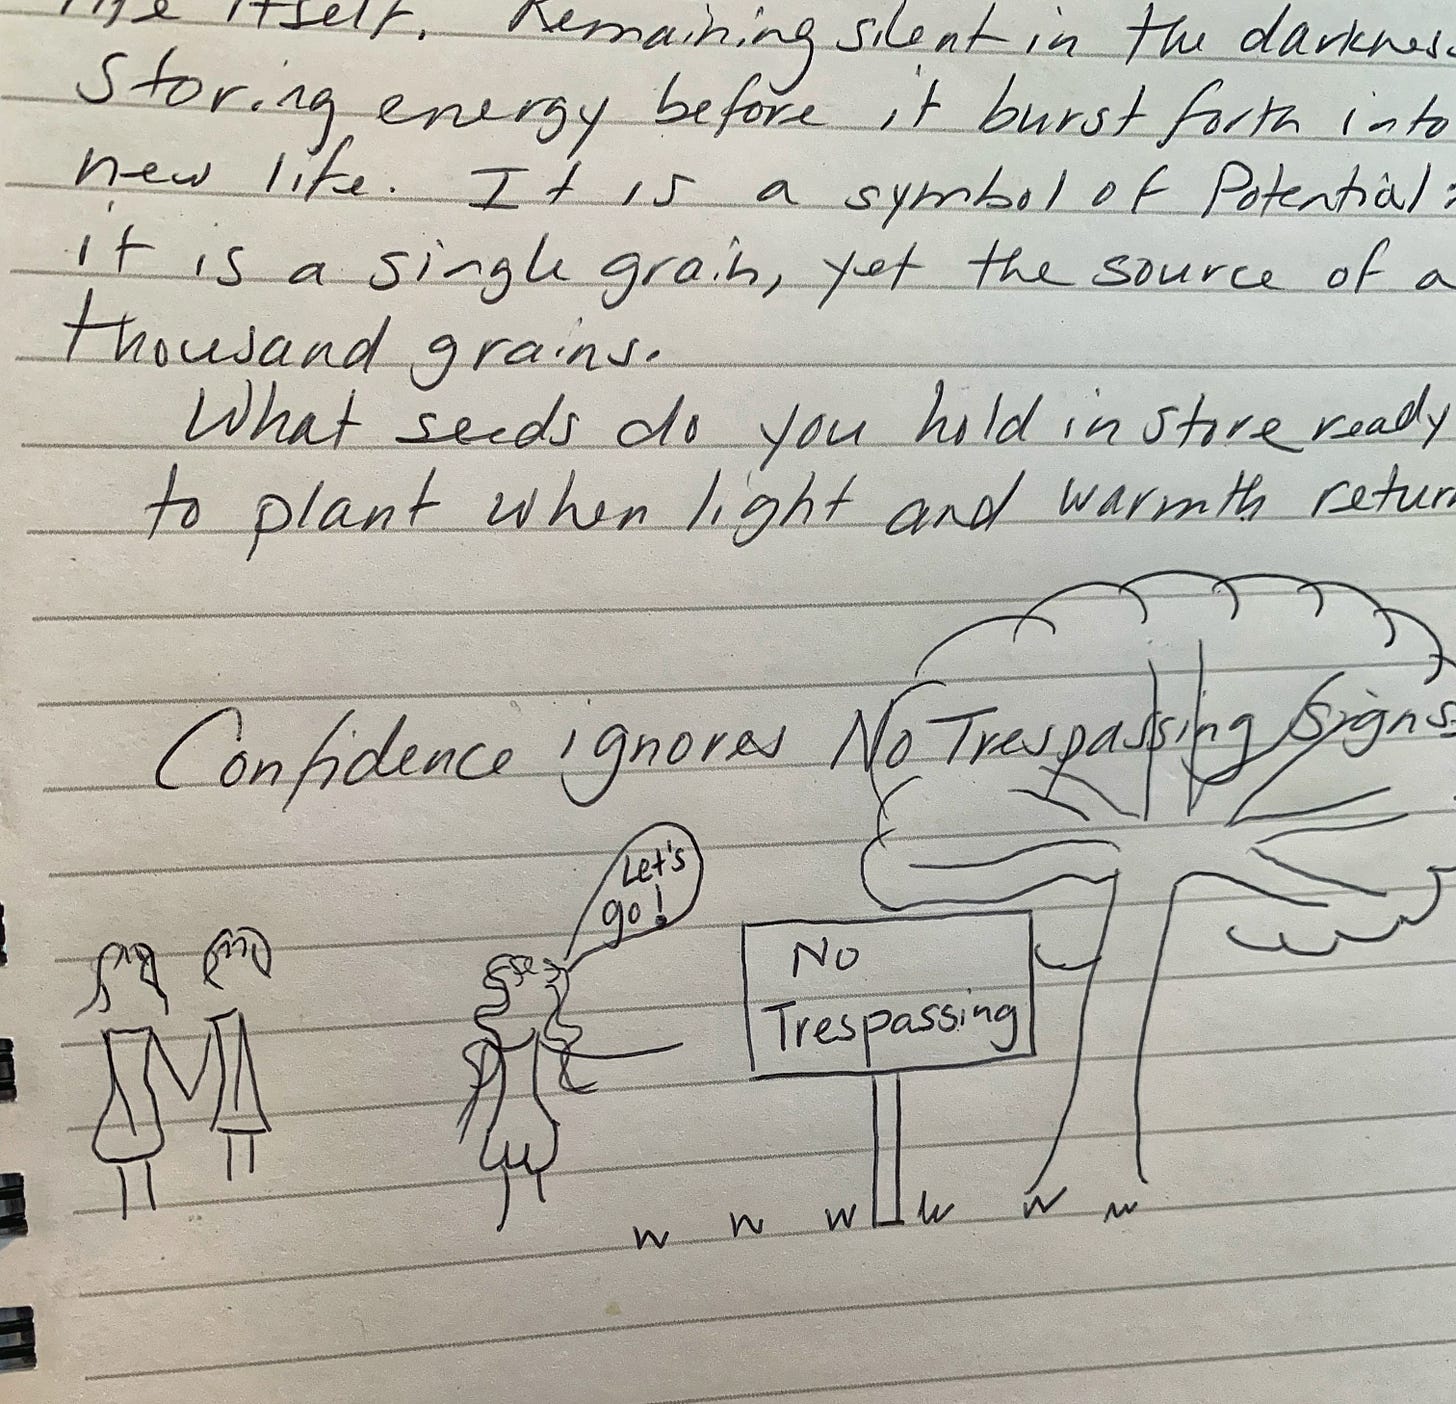 life itself. Remaining silent in the darkness
storing energy before it burst forth into
new life. It is a symbol of Potential:
it is a single grain, yet the source of a
thousand grains.
What seeds do you hold in store ready
to plant when light and warmth return
Confidence ignores No Trespassing Signs
Let's
go!
No
Trespassing